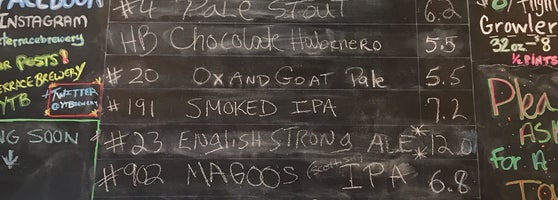 FACEBOOK
INSTAGRAM
terracebrewery
POSTS!
TERRACE BREWERY
YTB
TWITTER
@YTBrewery
NG SOON
#4 Pale Stout 6.2
HB Chocolate Habenero 5.5
#20 OX AND GOAT Pale 5.5
#191 SMOKED IPA 7.2
#23 ENGLISH STRONG ALE * 12.0
#902 MAGOOS IPA 6.8
Growler
32oz - $8
1/2 PINTS
Plea
ASK
For A